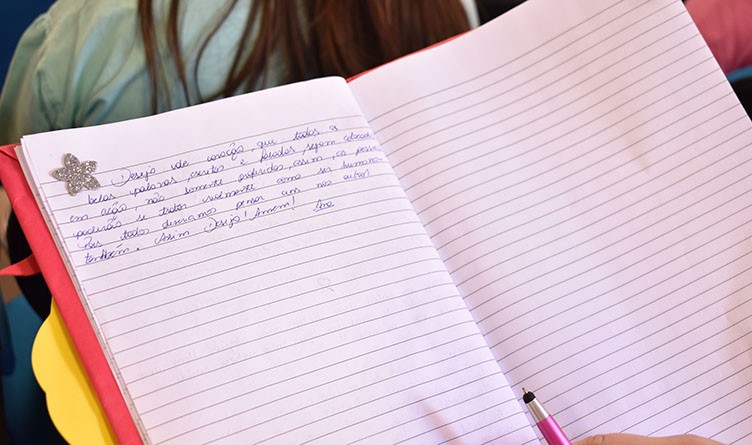 Desejo de coração, que todas as
belas palavras, escritas e faladas, sejam colocad
em ação, não somente proferidas, assim, as pesso
poderão se tratar realmente como ser humano
Pois todos devíamos pensar uns nos outros
também. Assim Desejo! Amém! Ana